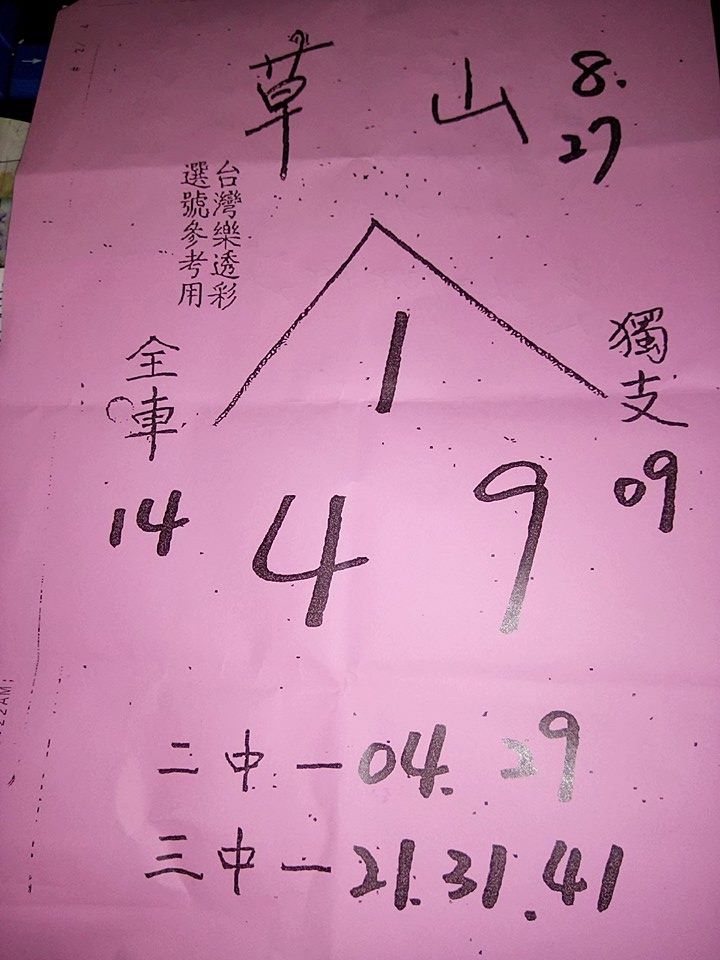 草山 8.
27
台灣樂透彩
選號參考用
1
全車
獨支
14
4 9
09
二中一04. 29
三中一21. 31. 41